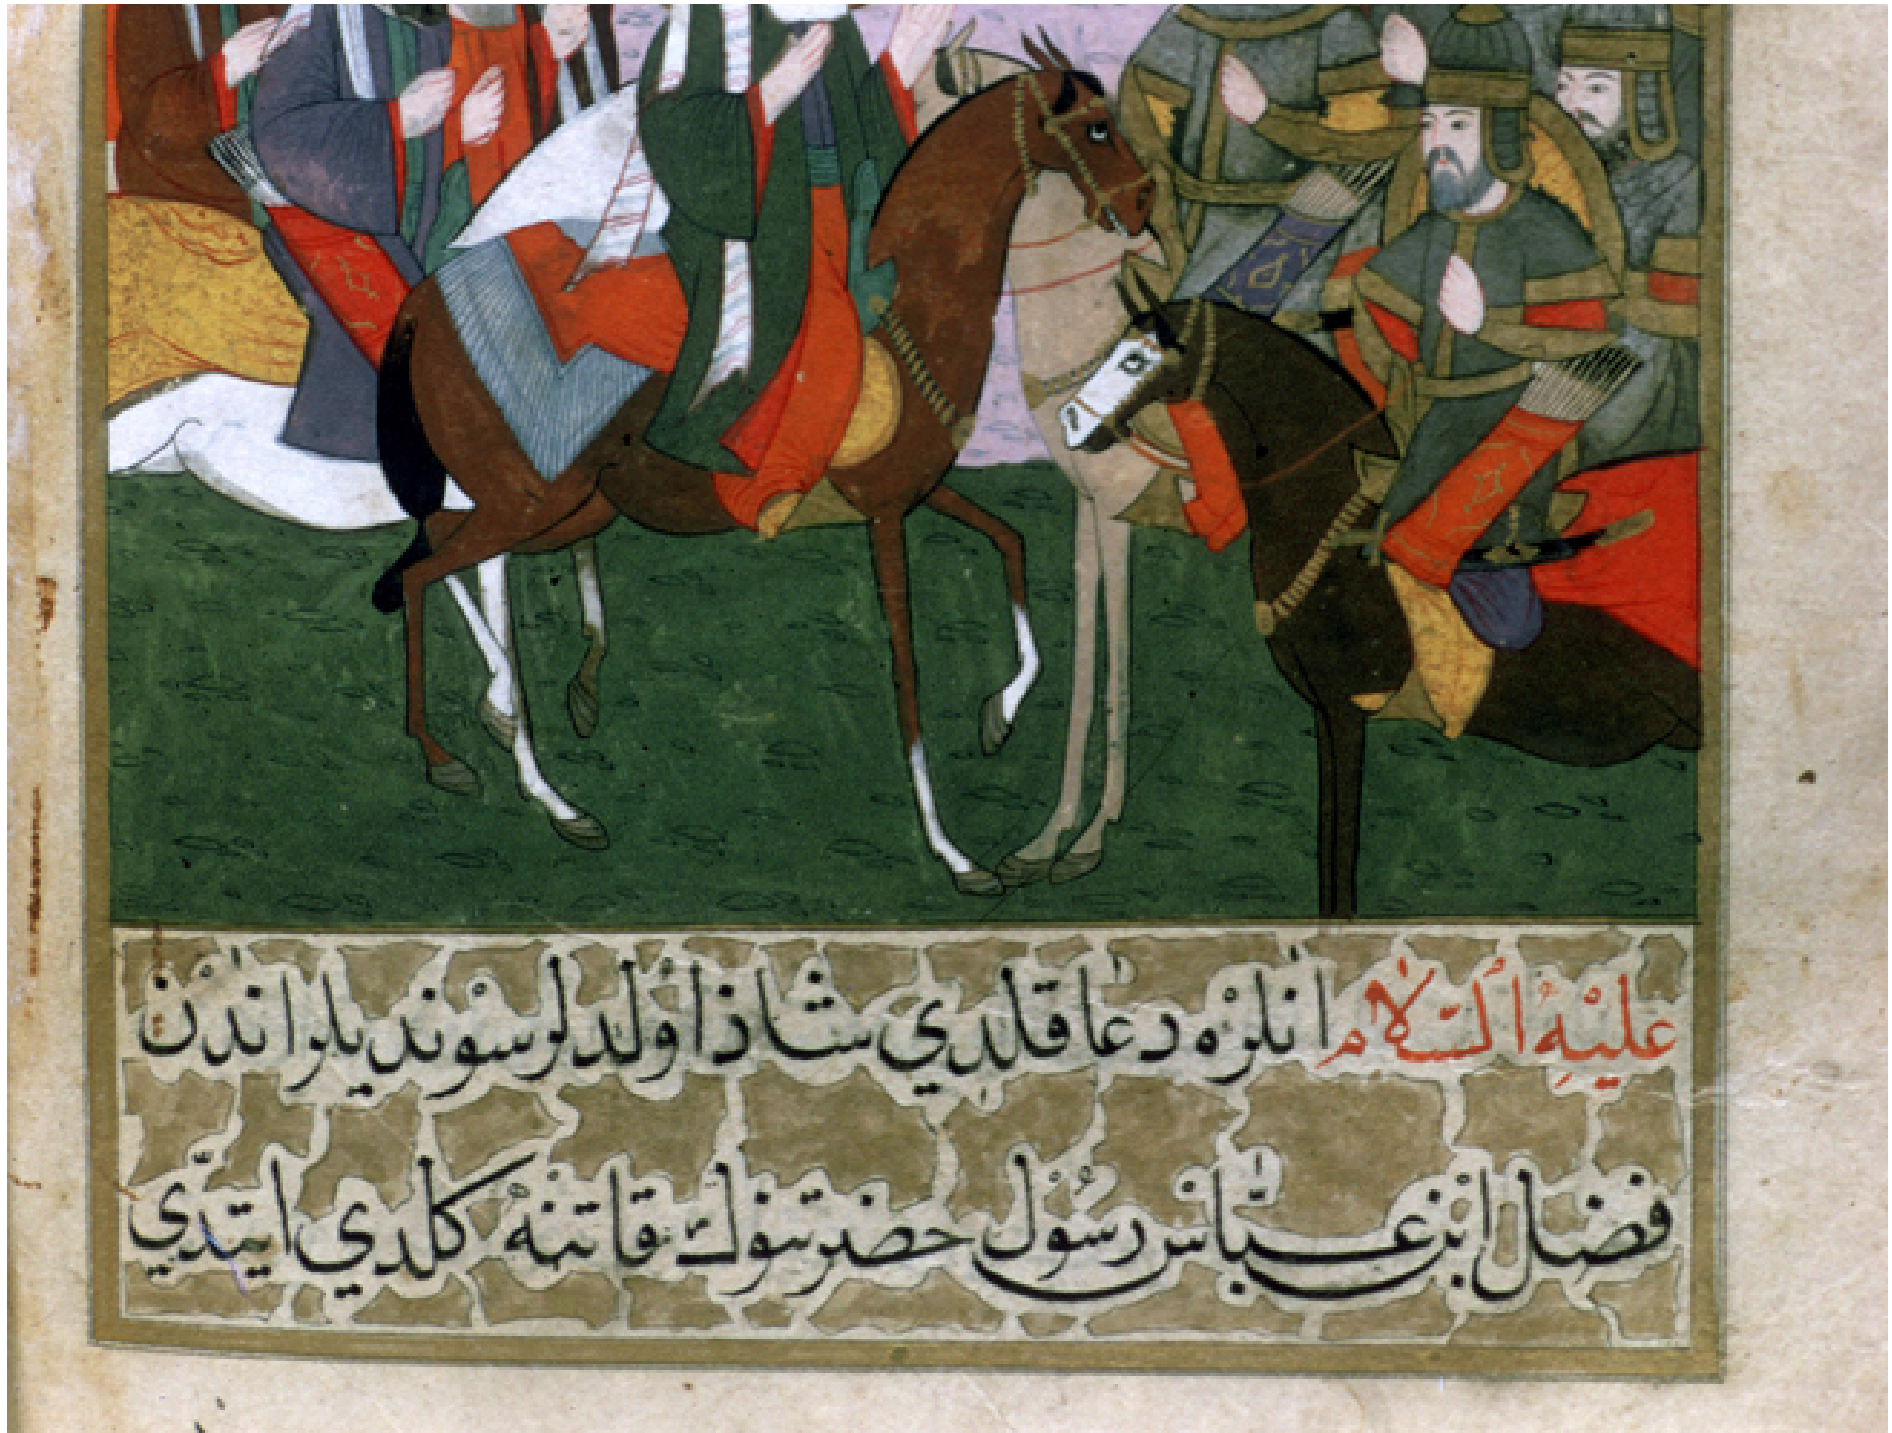 عليْهِ اُلسّلام انلرْه دعا قلدي شاذ اوُلدلر سوْنديلر اندْن
فضل ابْن عبّاس رسوُل حضرتنوُك قاتنهْ كلدي ايتدّي